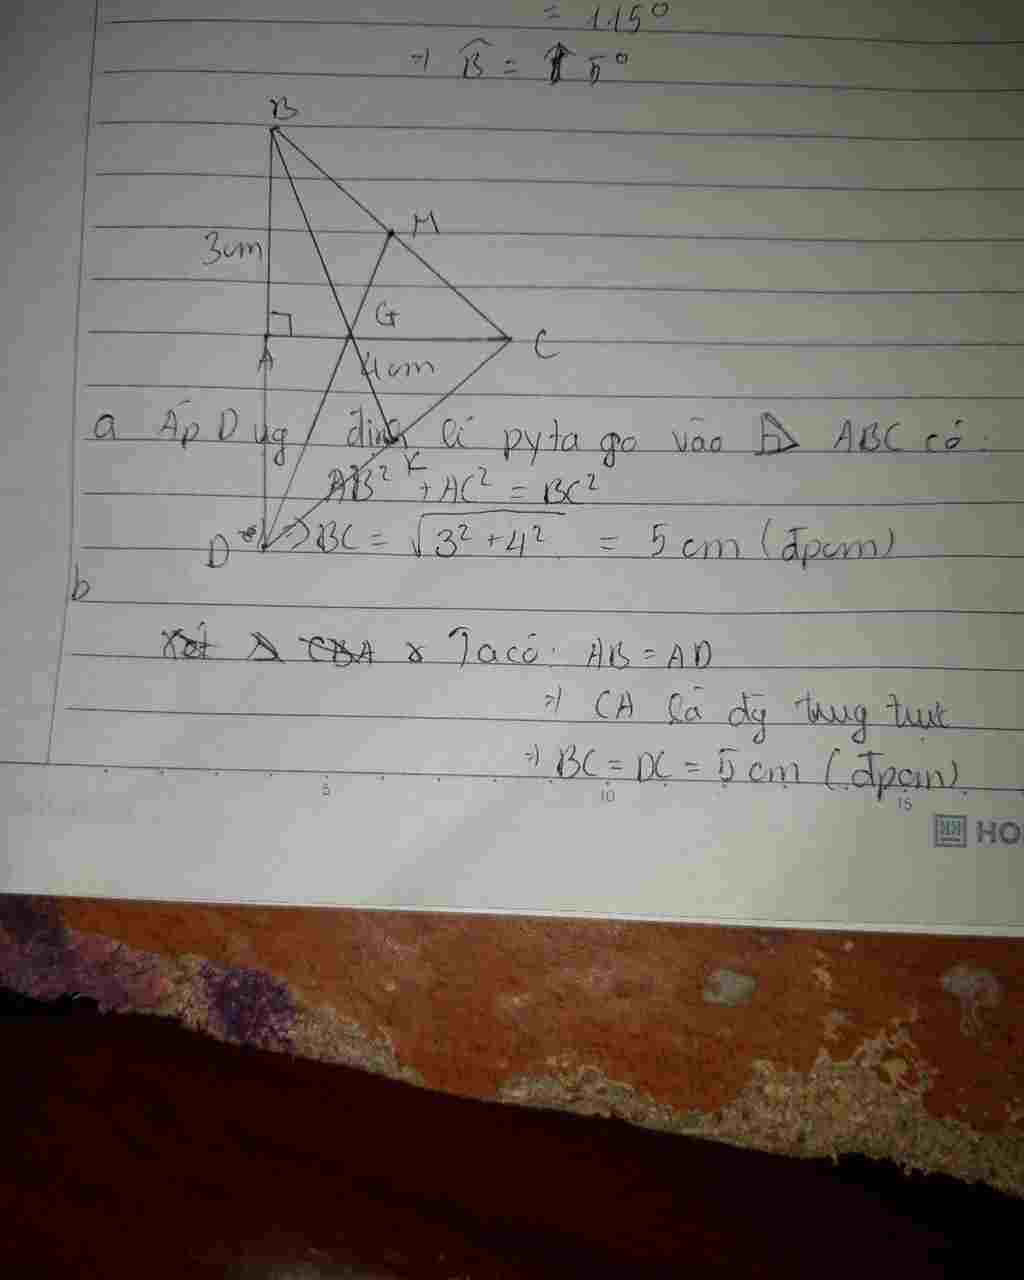 = 115°
⇒ B̂ = 5°
B
M
3cm
G
A
4cm
C
a Áp Dụg định lí pytago vào △ ABC có:
K
AB² + AC² = BC²
D
⇒ BC = √3² + 4² = 5 cm (đpcm)
b
Ta có: AB = AD
⇒ CA là đg trug trực
⇒ BC = DC = 5 cm (đpcm)
5 10 15
HO